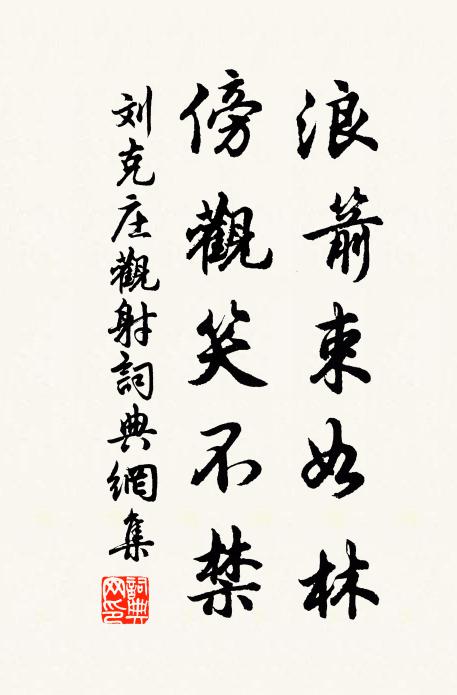 浪箭束如林
傍觀笑不禁
刘克庄觀射詞典網集
詞典網印